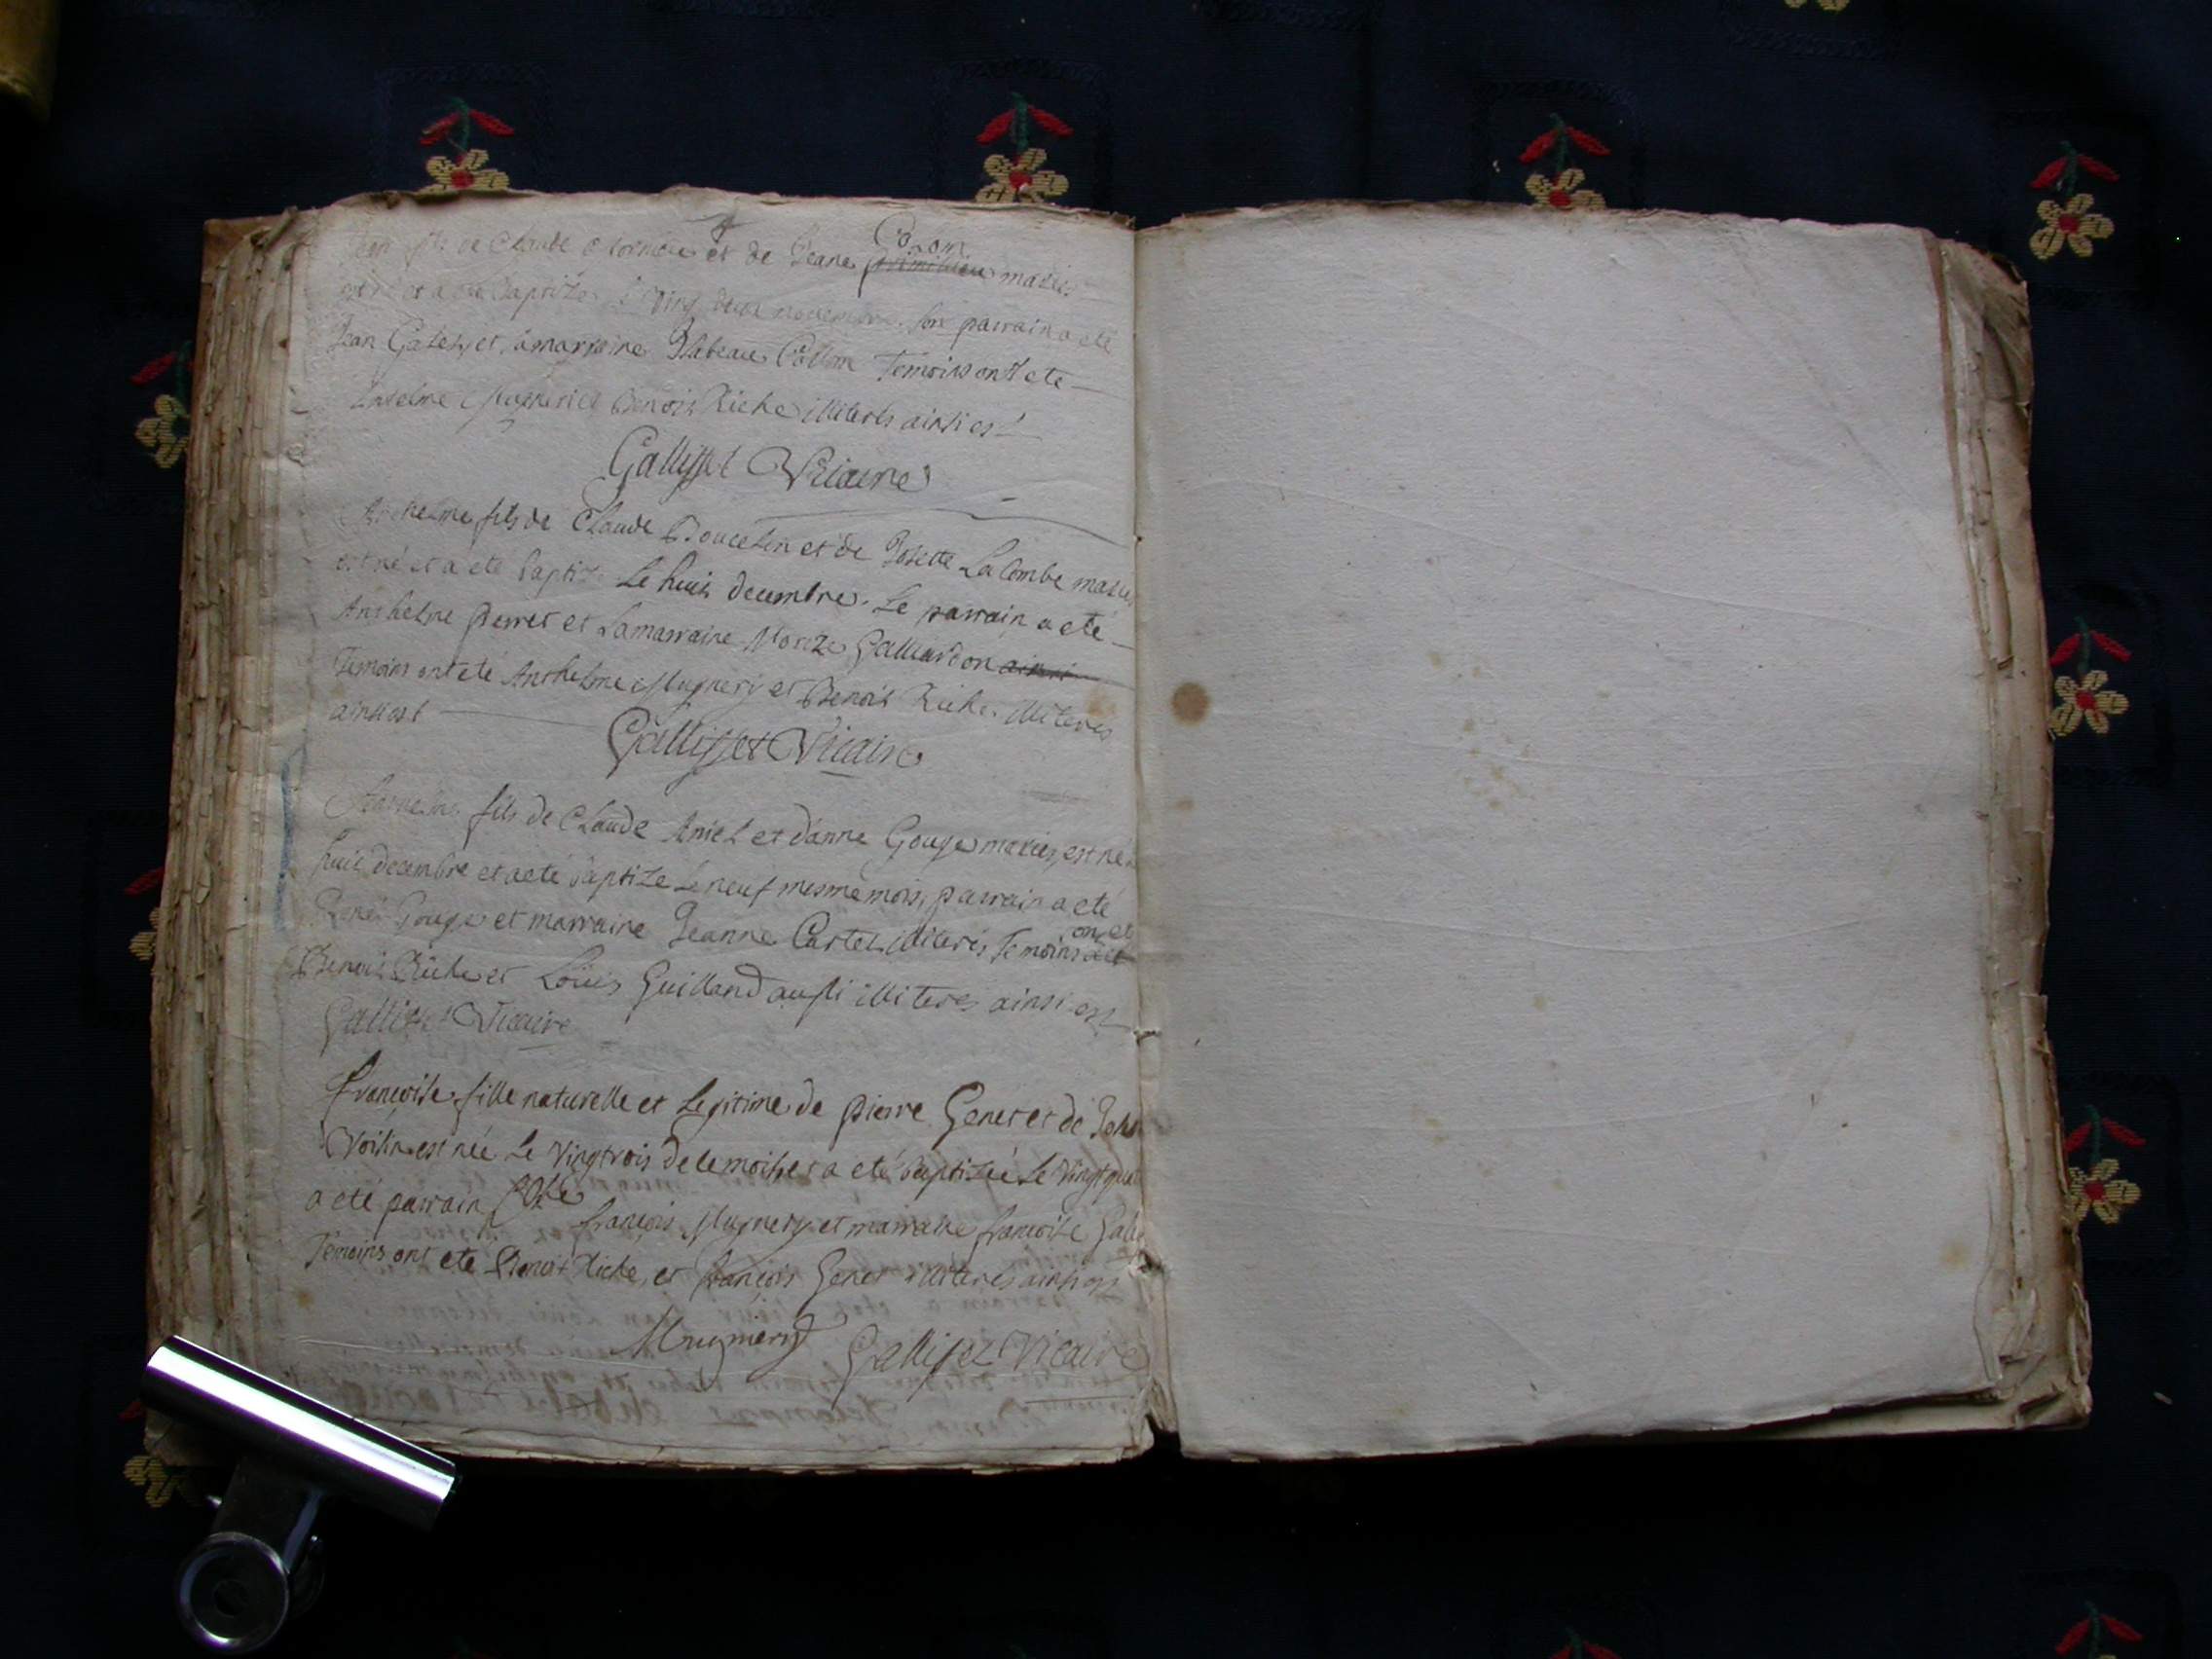 Jean fils de Claude et de Jeane Colom maries
est ne et a ete baptize le vingt deux novembre. son parrain a eté
Jean Galley et sa marraine Isabeau Collom Temoins ont ete
Anselme Mugnery et Benoit Riche illiterés ainsi est
Gallisset Vicaire
Anthelme fils de Claude Doucelin et de Josette La Combe maries
est né et a eté baptizé Le huit decembre. Le parrain a eté
Anthelme pierret et La marraine Morize Galliardon ainsi
Temoins ont eté Anthelme Mugnery et Benoit Riche illiteres
ainsi est
Gallisset Vicaire
Anthelme fils de Claude Amiel et d'anne Gouge mariés, est né
huit decembre et a eté baptizé Le neuf mesme mois, parrain a eté
René Gouge et marraine Jeanne Cartel illiterés Temoins ont eté
Benoit Riche et Loüis Guilland aussi illiterés ainsi est
Gallisset Vicaire
françoise fille naturelle et Legitime de pierre Genet et de
Voisin est née Le Vingtrois de ce mois et a eté baptizée Le Vingt
a eté parrain françois Mugnery et marraine françoise
Témoins ont eté Benoit Riche, et françois Genet illiterés ainsi est
Mugniery Gallisset Vicaire